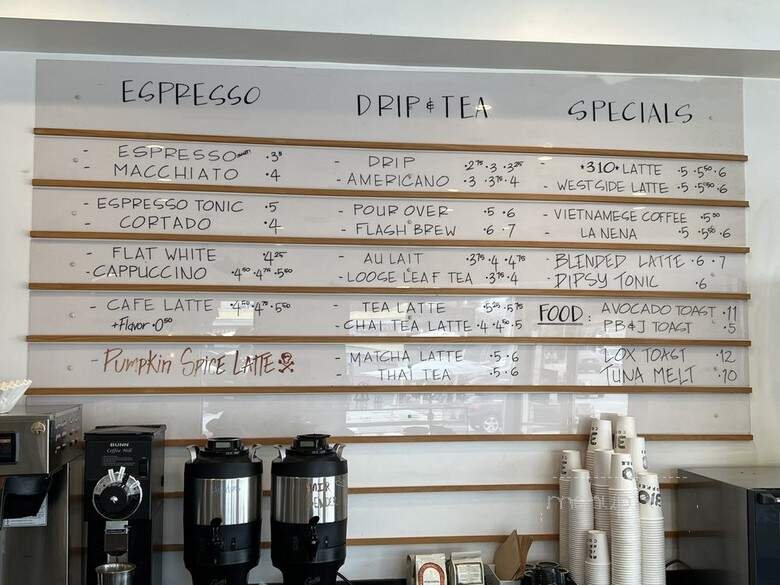 ESPRESSO
- ESPRESSO ·3
- MACCHIATO ·4
- ESPRESSO TONIC ·5
- CORTADO ·4
- FLAT WHITE ·4²⁵
- CAPPUCCINO ·4⁵⁰·4⁷⁵·5⁵⁰
- CAFE LATTE ·4⁵⁰·4⁷⁵·5⁵⁰
+Flavor ·0⁵⁰
- Pumpkin Spice Latte
DRIP & TEA
- DRIP ·2⁷⁵·3·3²⁵
- AMERICANO ·3·3⁷⁵·4
- POUR OVER ·5·6
- FLASH BREW ·6·7
- AU LAIT ·3⁷⁵·4·4⁷⁵
- LOOSE LEAF TEA ·3⁷⁵·4
- TEA LATTE ·5²⁵·5⁷⁵
- CHAI TEA LATTE ·4·4⁵⁰·5
- MATCHA LATTE ·5·6
- THAI TEA ·5·6
SPECIALS
·310· LATTE ·5·5⁵⁰·6
- WESTSIDE LATTE ·5·5⁵⁰·6
- VIETNAMESE COFFEE ·5⁵⁰
- LA NENA ·5·5⁵⁰·6
- BLENDED LATTE ·6·7
- DIPSY TONIC ·6
FOOD: AVOCADO TOAST ·11
PB&J TOAST ·5
LOX TOAST ·12
TUNA MELT ·10
BUNN
Coffee Mill